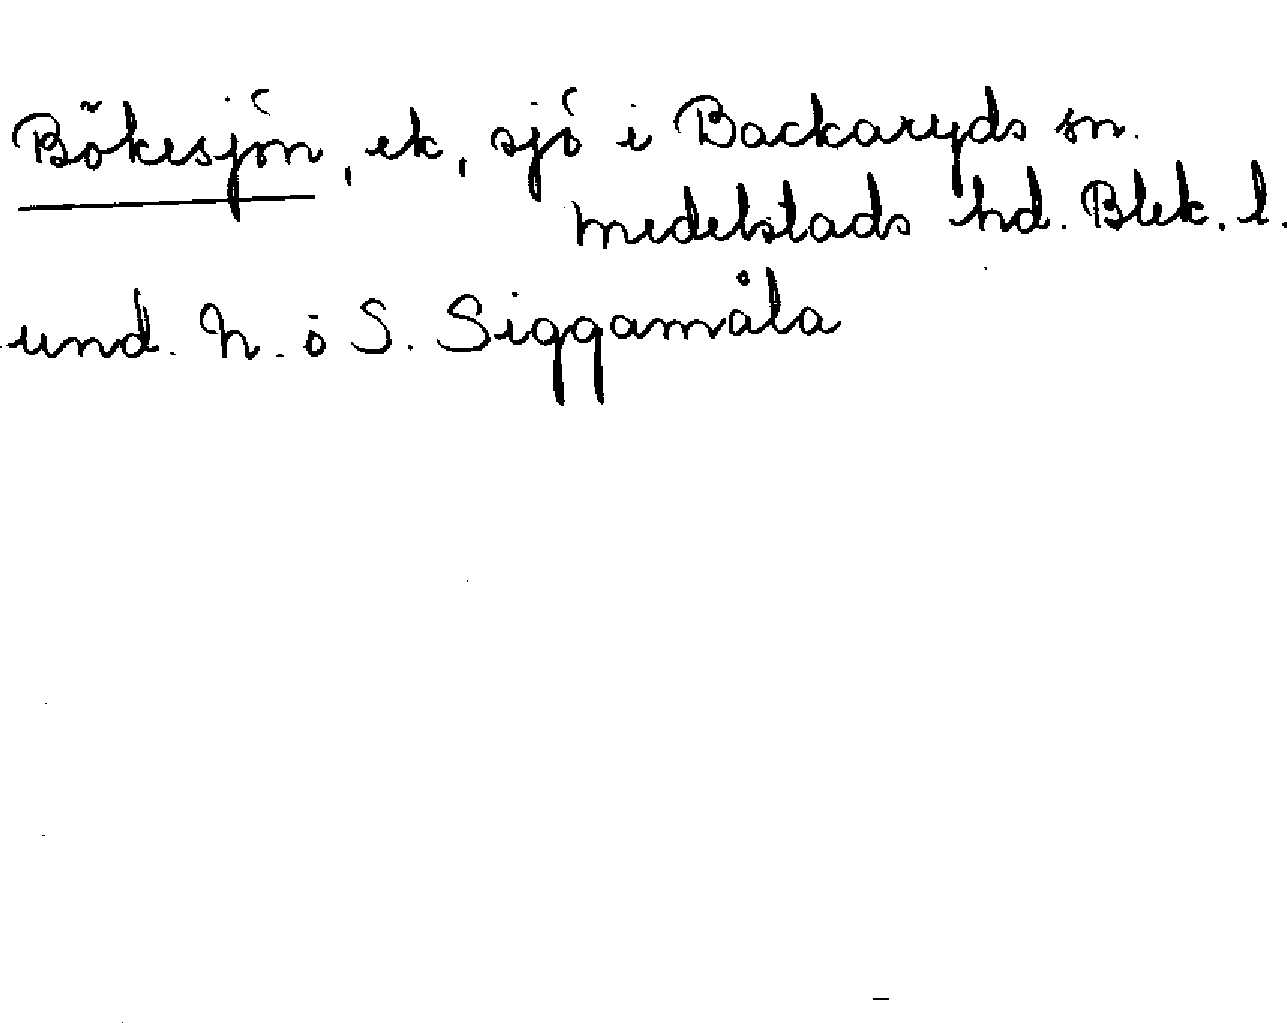 Bökesjön, ek, sjö i Backaryds sn.
Medelstads hd. Blek. l.
und. N. ö S. Siggamåla